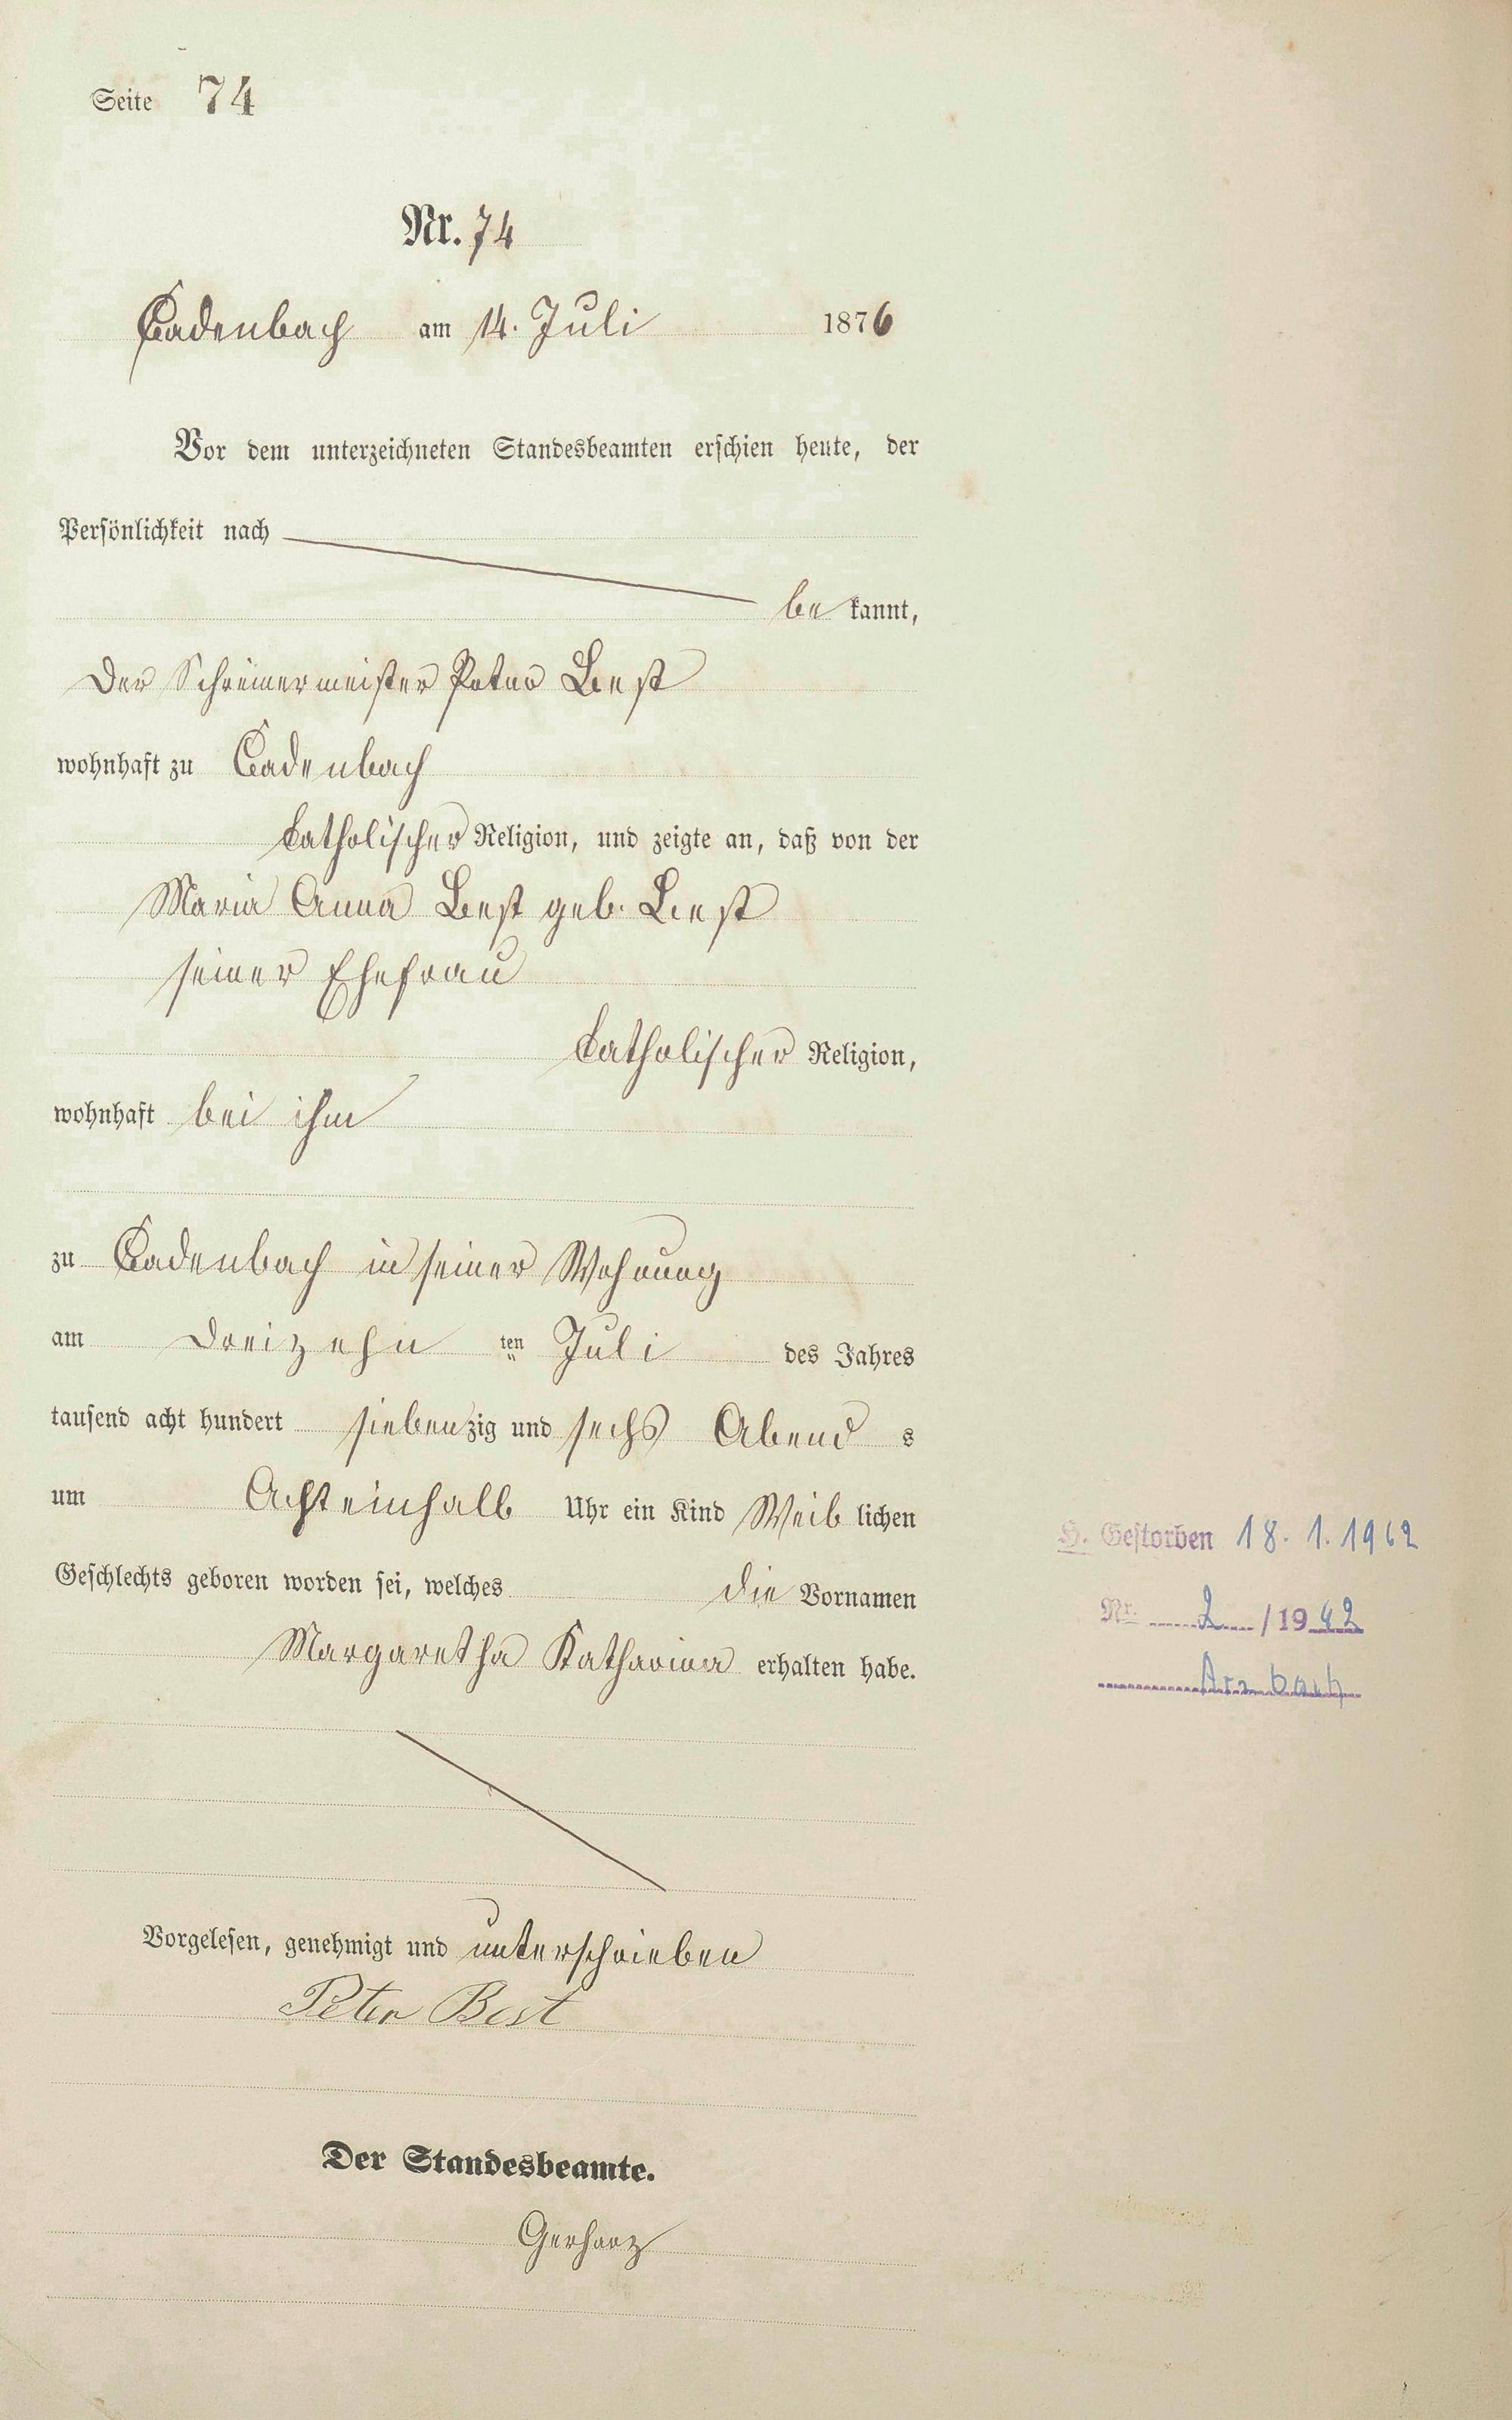 Seite 74
Nr. 74
Cadenbach am 14. Juli 1876
Vor dem unterzeichneten Standesbeamten erschien heute, der
Persönlichkeit nach
be kannt,
Der Schreinermeister Peter Best
wohnhaft zu Cadenbach
katholischer Religion, und zeigte an, daß von der
Maria Anna Best geb. Best
seiner Ehefrau
katholischer Religion,
wohnhaft bei ihm
zu Cadenbach in seiner Wohnung
am Dreizehn ten Juli des Jahres
tausend acht hundert siebenzig und sechs Abend s
um Achteinhalb Uhr ein Kind Weib lichen
Geschlechts geboren worden sei, welches die Vornamen
Margaretha Katharina erhalten habe.
H. Gestorben 18. 1. 1962
Nr. 2 / 19 62
Arzbach
Vorgelesen, genehmigt und unterschrieben
Peter Best
Der Standesbeamte.
Gerharz